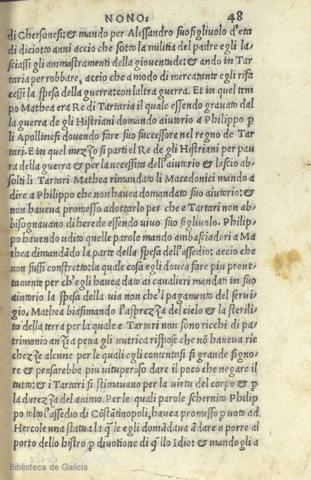 NONO. 48
di Chersonesi: & mando per Alessandro suo figliuolo d'eta
di diciotto anni accio che sotto la militia del padre egli la-
sciassi gli ammaestramenti della gioventude: & ando in Tar
taria per robbare, accio che a modo di mercatante egli rifa
cessi la spesa della guerra: con laltra guerra. Et in quel tem
po Mathea era Re di Tartaria il quale essendo gravato dal
la guerra de gli Histriani domando aiutorio a Philippo ꝑ
li Apollinesi dovendo fare suo successore nel regno de Tar
tari. E in quel mezzo si parti el Re de gli Histriani per pau
ra della guerra & per la necessita dell'aiutorio & lascio ab-
solti li Tartari Mathea rimandato li Macedonici mando a
dire a Philippo che non haveva domandato suo aiutorio: &
non haveva promesso adottarlo per che e Tartari non ab-
bisognavano di herede essendo vivo suo figliuolo. Philip-
po havendo udito quelle parole mando ambasciadori a Ma
thea dimandādo la parte della spesa dell'assedio: accio che
non fussi constretto: la quale cosa egli dovea fare piu pront-
tamente per ch'egli havea dato ai cavalieri mandati in suo
aiutorio la spesa della via non che'l pagamento del servi-
gio, Mathea biasimando l'asprezza del cielo & la sterili-
ta della terra per la quale e Tartari non sono ricchi di pa-
trimonio anzi a pena gli nutrica rispose che nō haveva ric
chezze alcune per le quali egli contentasi si grande signo-
re & pensarebbe piu vituperoso dare il poco che negare il
tutto: & i Tartari si stimavano per la virtu del corpo & ꝑ
la durezza del animo. Per le quali parole schernito Philip
po tolto l'assedio di Cōstātinopoli, havea promesso ꝑ voto ad
Hercole una statua la q̄le egli domādava ādare a porre al
porto dello histro ꝑ divotione di q̄llo Idio: & mandogli a
Biblioteca de Galicia